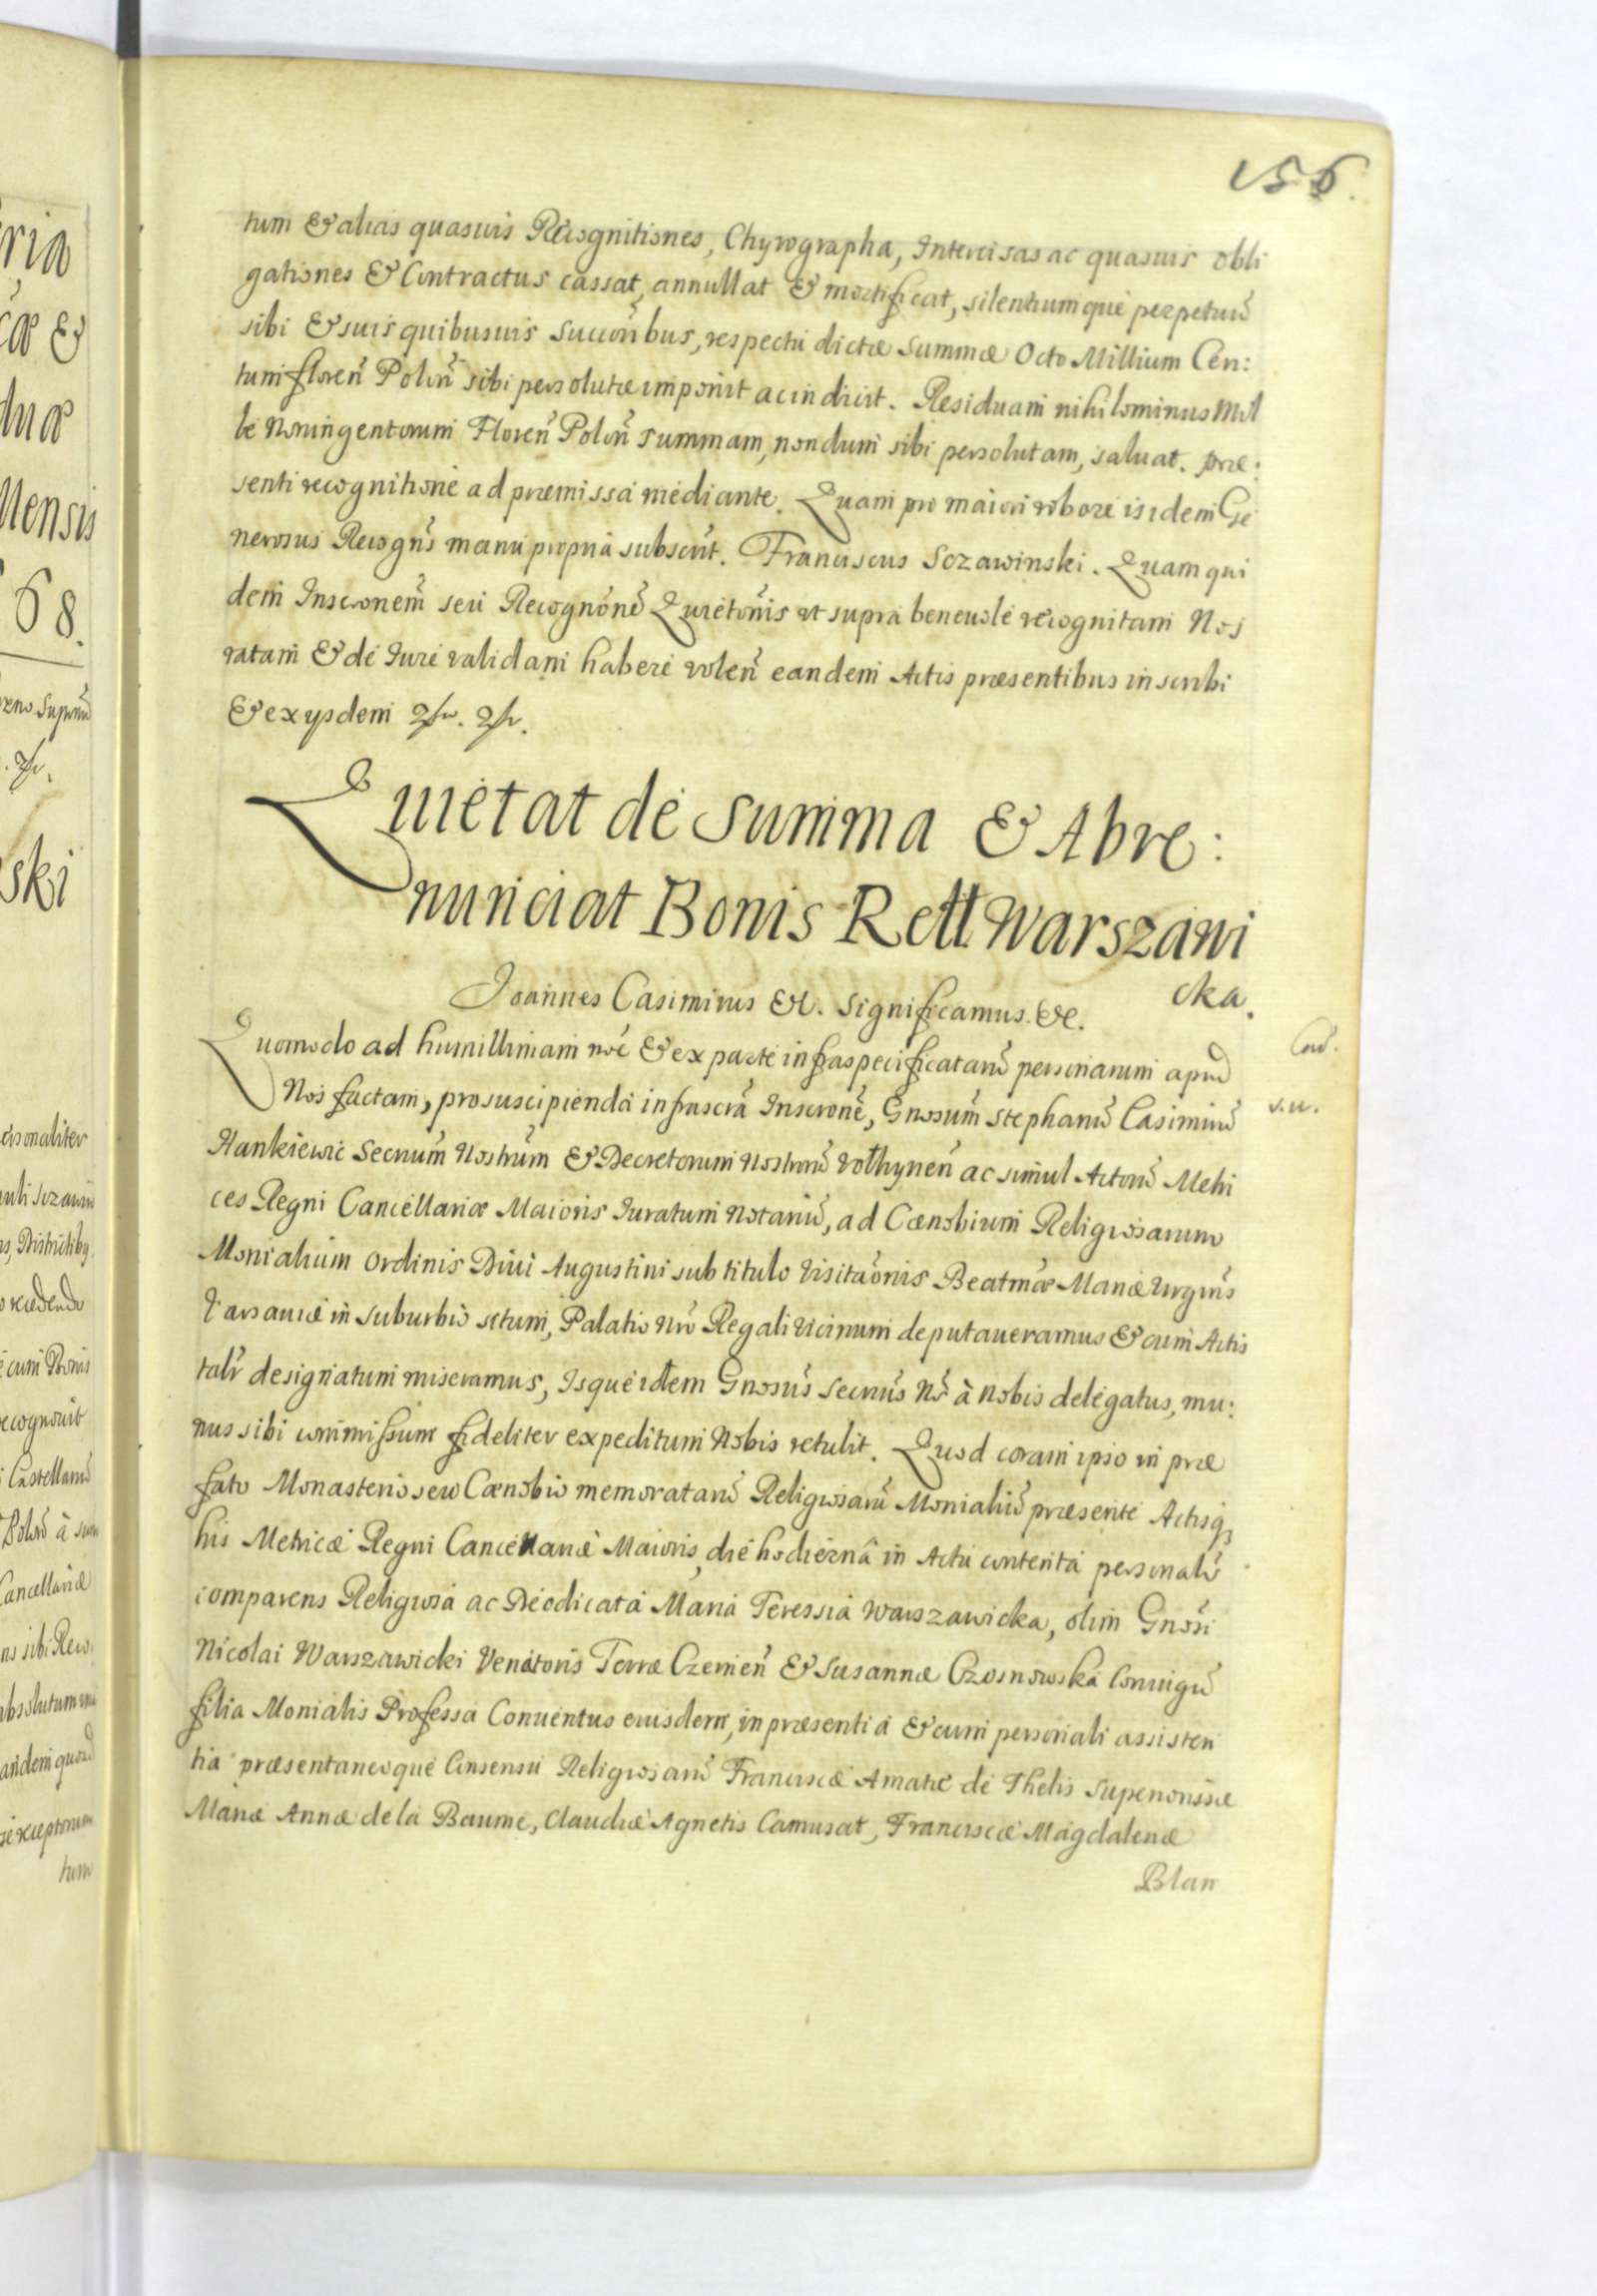 156.
tum & alias quasuis Recognitiones, Chyrographa, Intercisas ac quasuis obli
gationes & Contractus cassat, annullat & mortificat, silentiumque perpetuũ
sibi & suis quibusuis Succeñribus, respectu dictæ summæ Octo Millium Cen:
tum floreñ Poloñ sibi persolutæ imponit ac indicit. Residuam nihilominus Mil
le Noningentorum Floreñ Poloñ summam, nondum sibi persolutam, saluat. præ:
senti recognitione ad præmissa mediante. Quam pro maiori robore isidem Ge
nerosus Recogñs manu propria subscrit. Franciscus Sczawinski. Quam qui
dem Inscronem seu Recognõne Quietõnis ut supra beneuole recognitam Nos
ratam & de Iure validam habere voleñ eandem Actis præsentibus inscribi
& ex ysdem
Quietat de Summa & Abre:
nunciat Bonis Rell Warszawi
cka.
Joannes Casimirus &c. Significamus. &c.
Quomodo ad humillimam nõe & ex parte infraspecificatarũ personarum apud
Nos factam, pro suscipienda infrascrã Inscrone, Gnosum Stephanũ Casimirũ
Hankiewic Secrium Nostrum & Decretorum Nostrorũ Volhyneñ ac simul Actorũ Metri
ces Regni Cancellariæ Maioris Iuratum Notariũ, ad Cænobium Religiosarum
Monialium Ordinis Diui Augustini sub titulo Visitãonis Beatmæ Mariæ Virginis
Varsauiæ in suburbio situm, Palatio Nro Regali vicinum deputaueramus & cum Actis
talr designatum miseramus, Isque idem Gnosus Secrius Nr à Nobis delegatus, mu:
nus sibi commissum fideliter expeditum Nobis retulit. Quod coram ipso in præ
fato Monasterio seu Cænobio memoratarũ Religiosarũ Monialiũ præsente Actisq
his Metricæ Regni Cancellariæ Maioris, die hodiernâ in Actu contenta personalr
comparens Religiosa ac Deodicata Maria Teressia Warszawicka, olim Gnosi
Nicolai Warszawicki Venatoris Terræ Czernieñ & Susannæ Czosnowska Coniugũ
filia Monialis Professa Conuentus eiusdem, in præsentia & cum personali assisten
tia præsentaneoque Consensu Religiosarũ Franciscæ Amatæ de Thelis Superiorissæ
Mariæ Annæ de la Baume, Claudiæ Agnetis Camusat, Franciscæ Magdalenæ
Blan